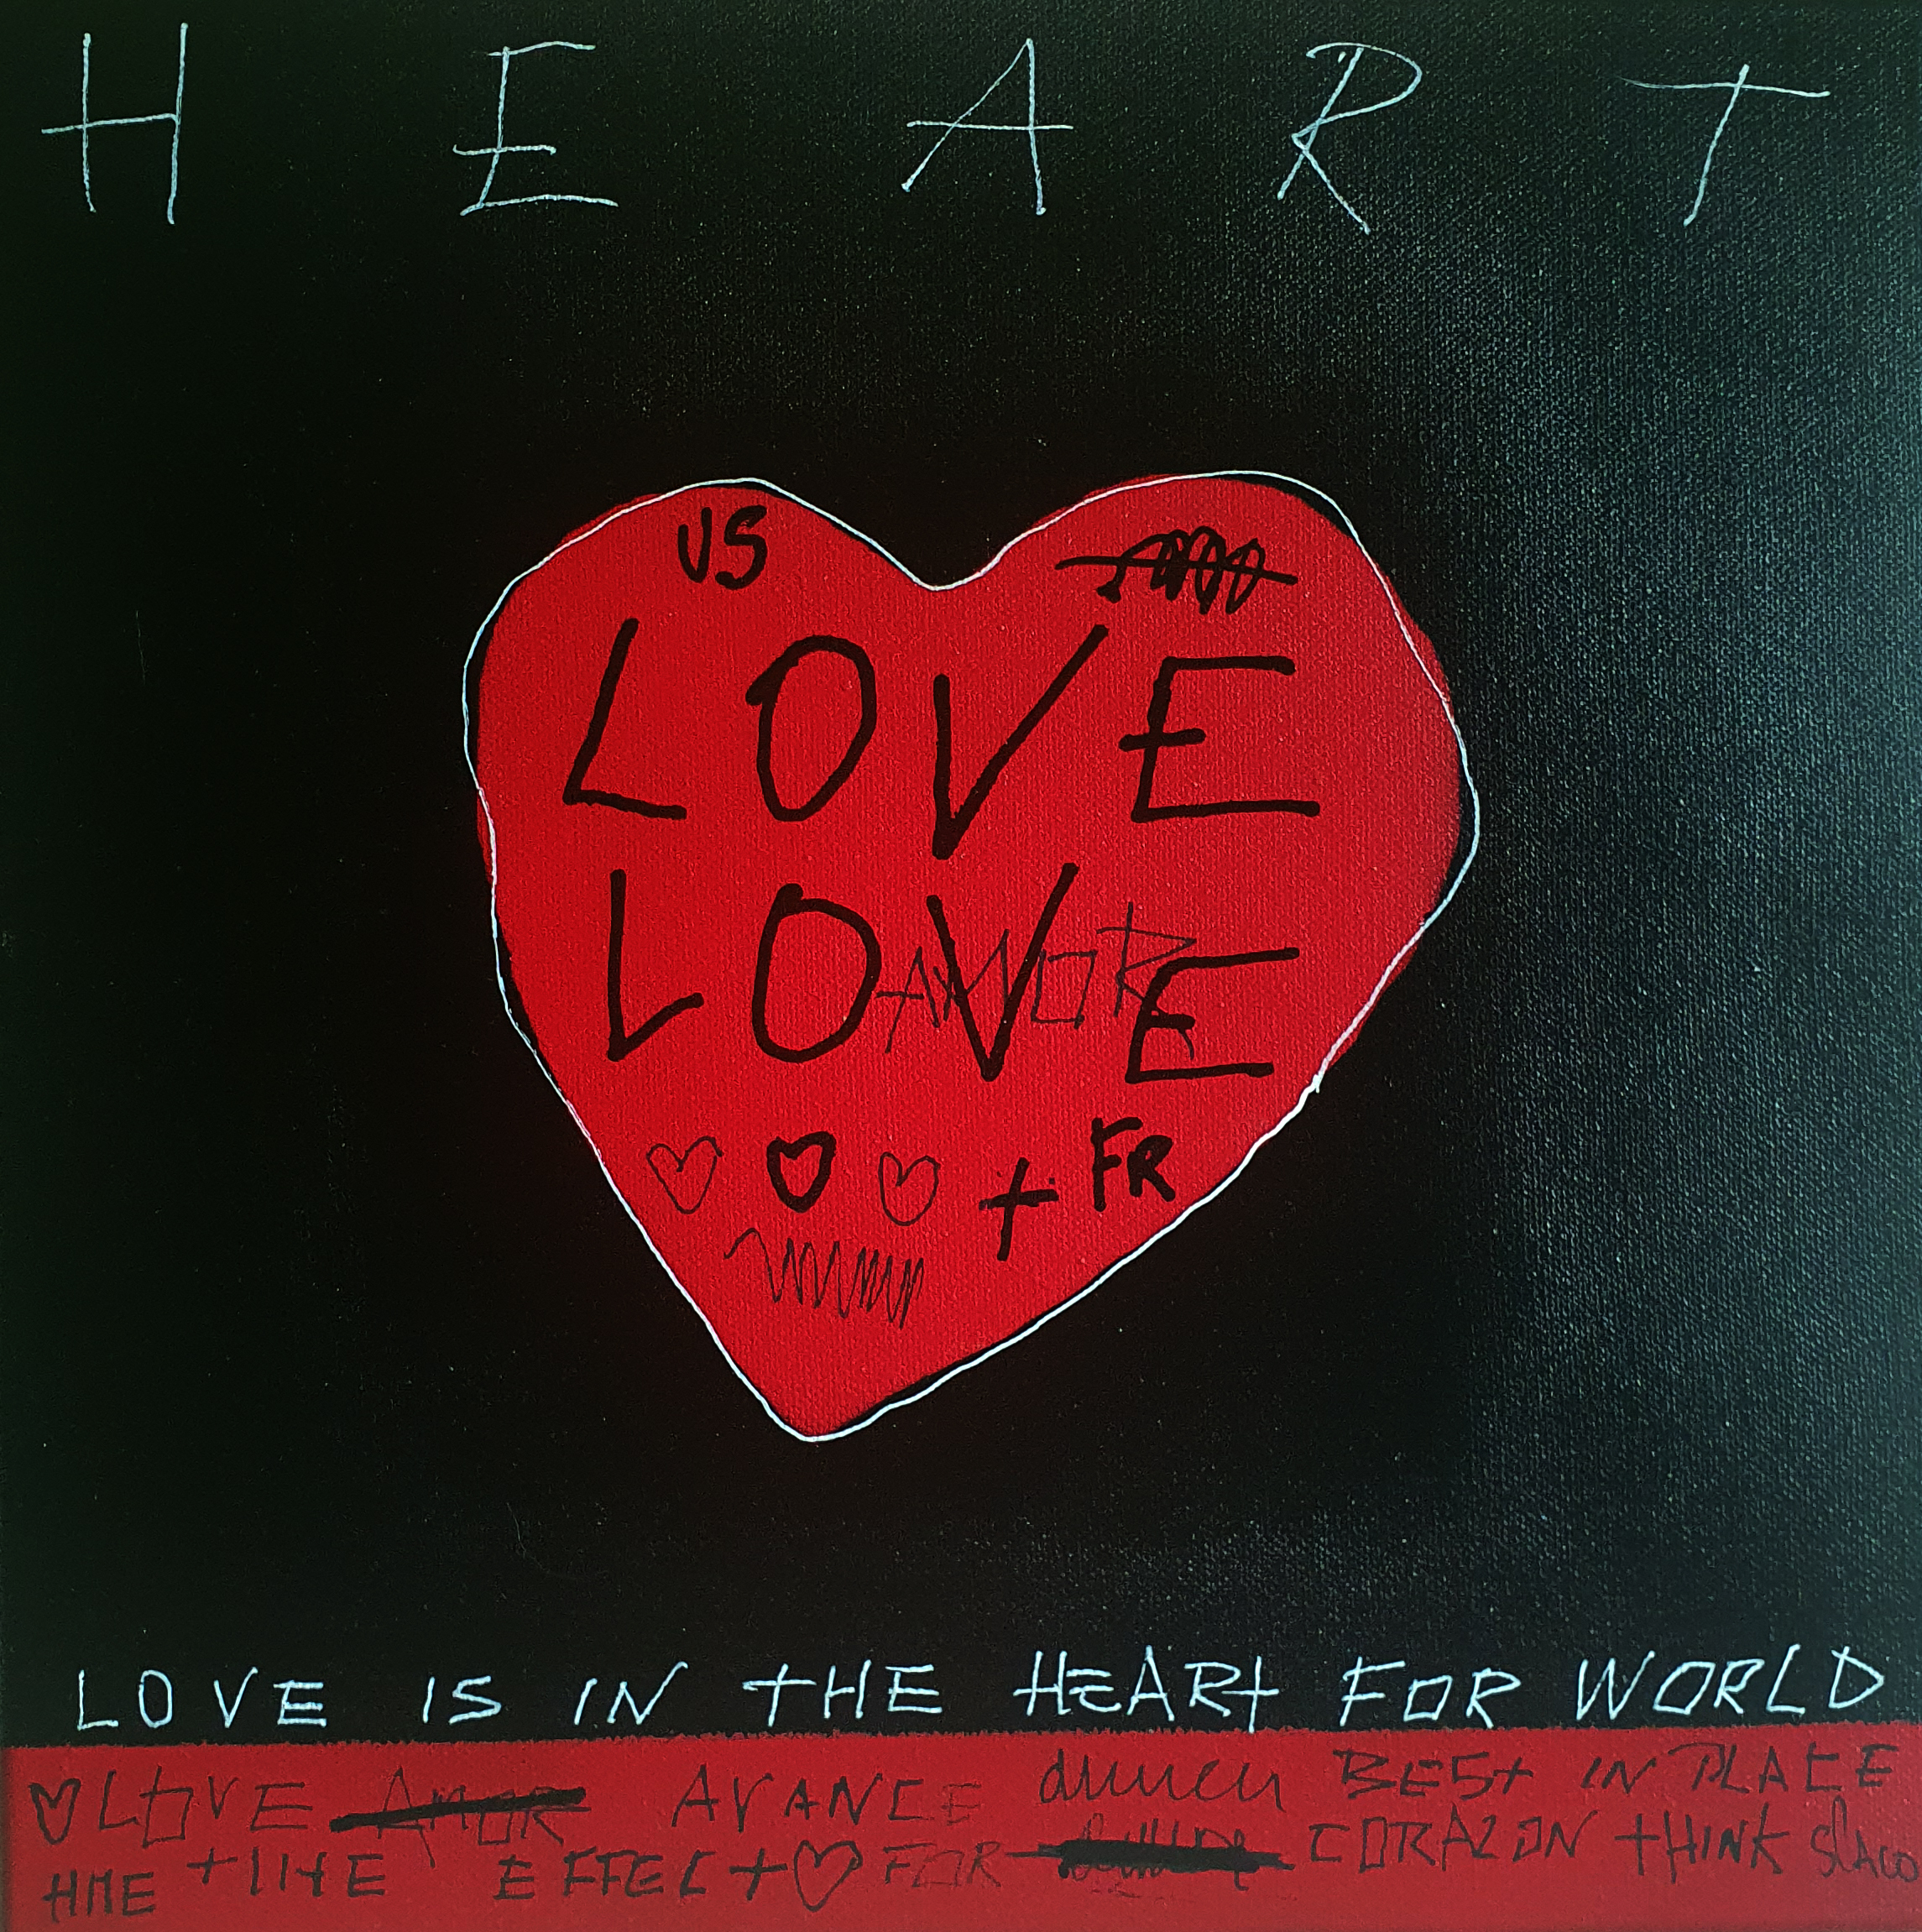 HEART
US
LOVE
LOVE
AMOR
+ FR
LOVE IS IN THE HEART FOR WORLD
LOVE AMOR AVANCE BEST IN PLACE
EFFECT FOR CORAZON THINK